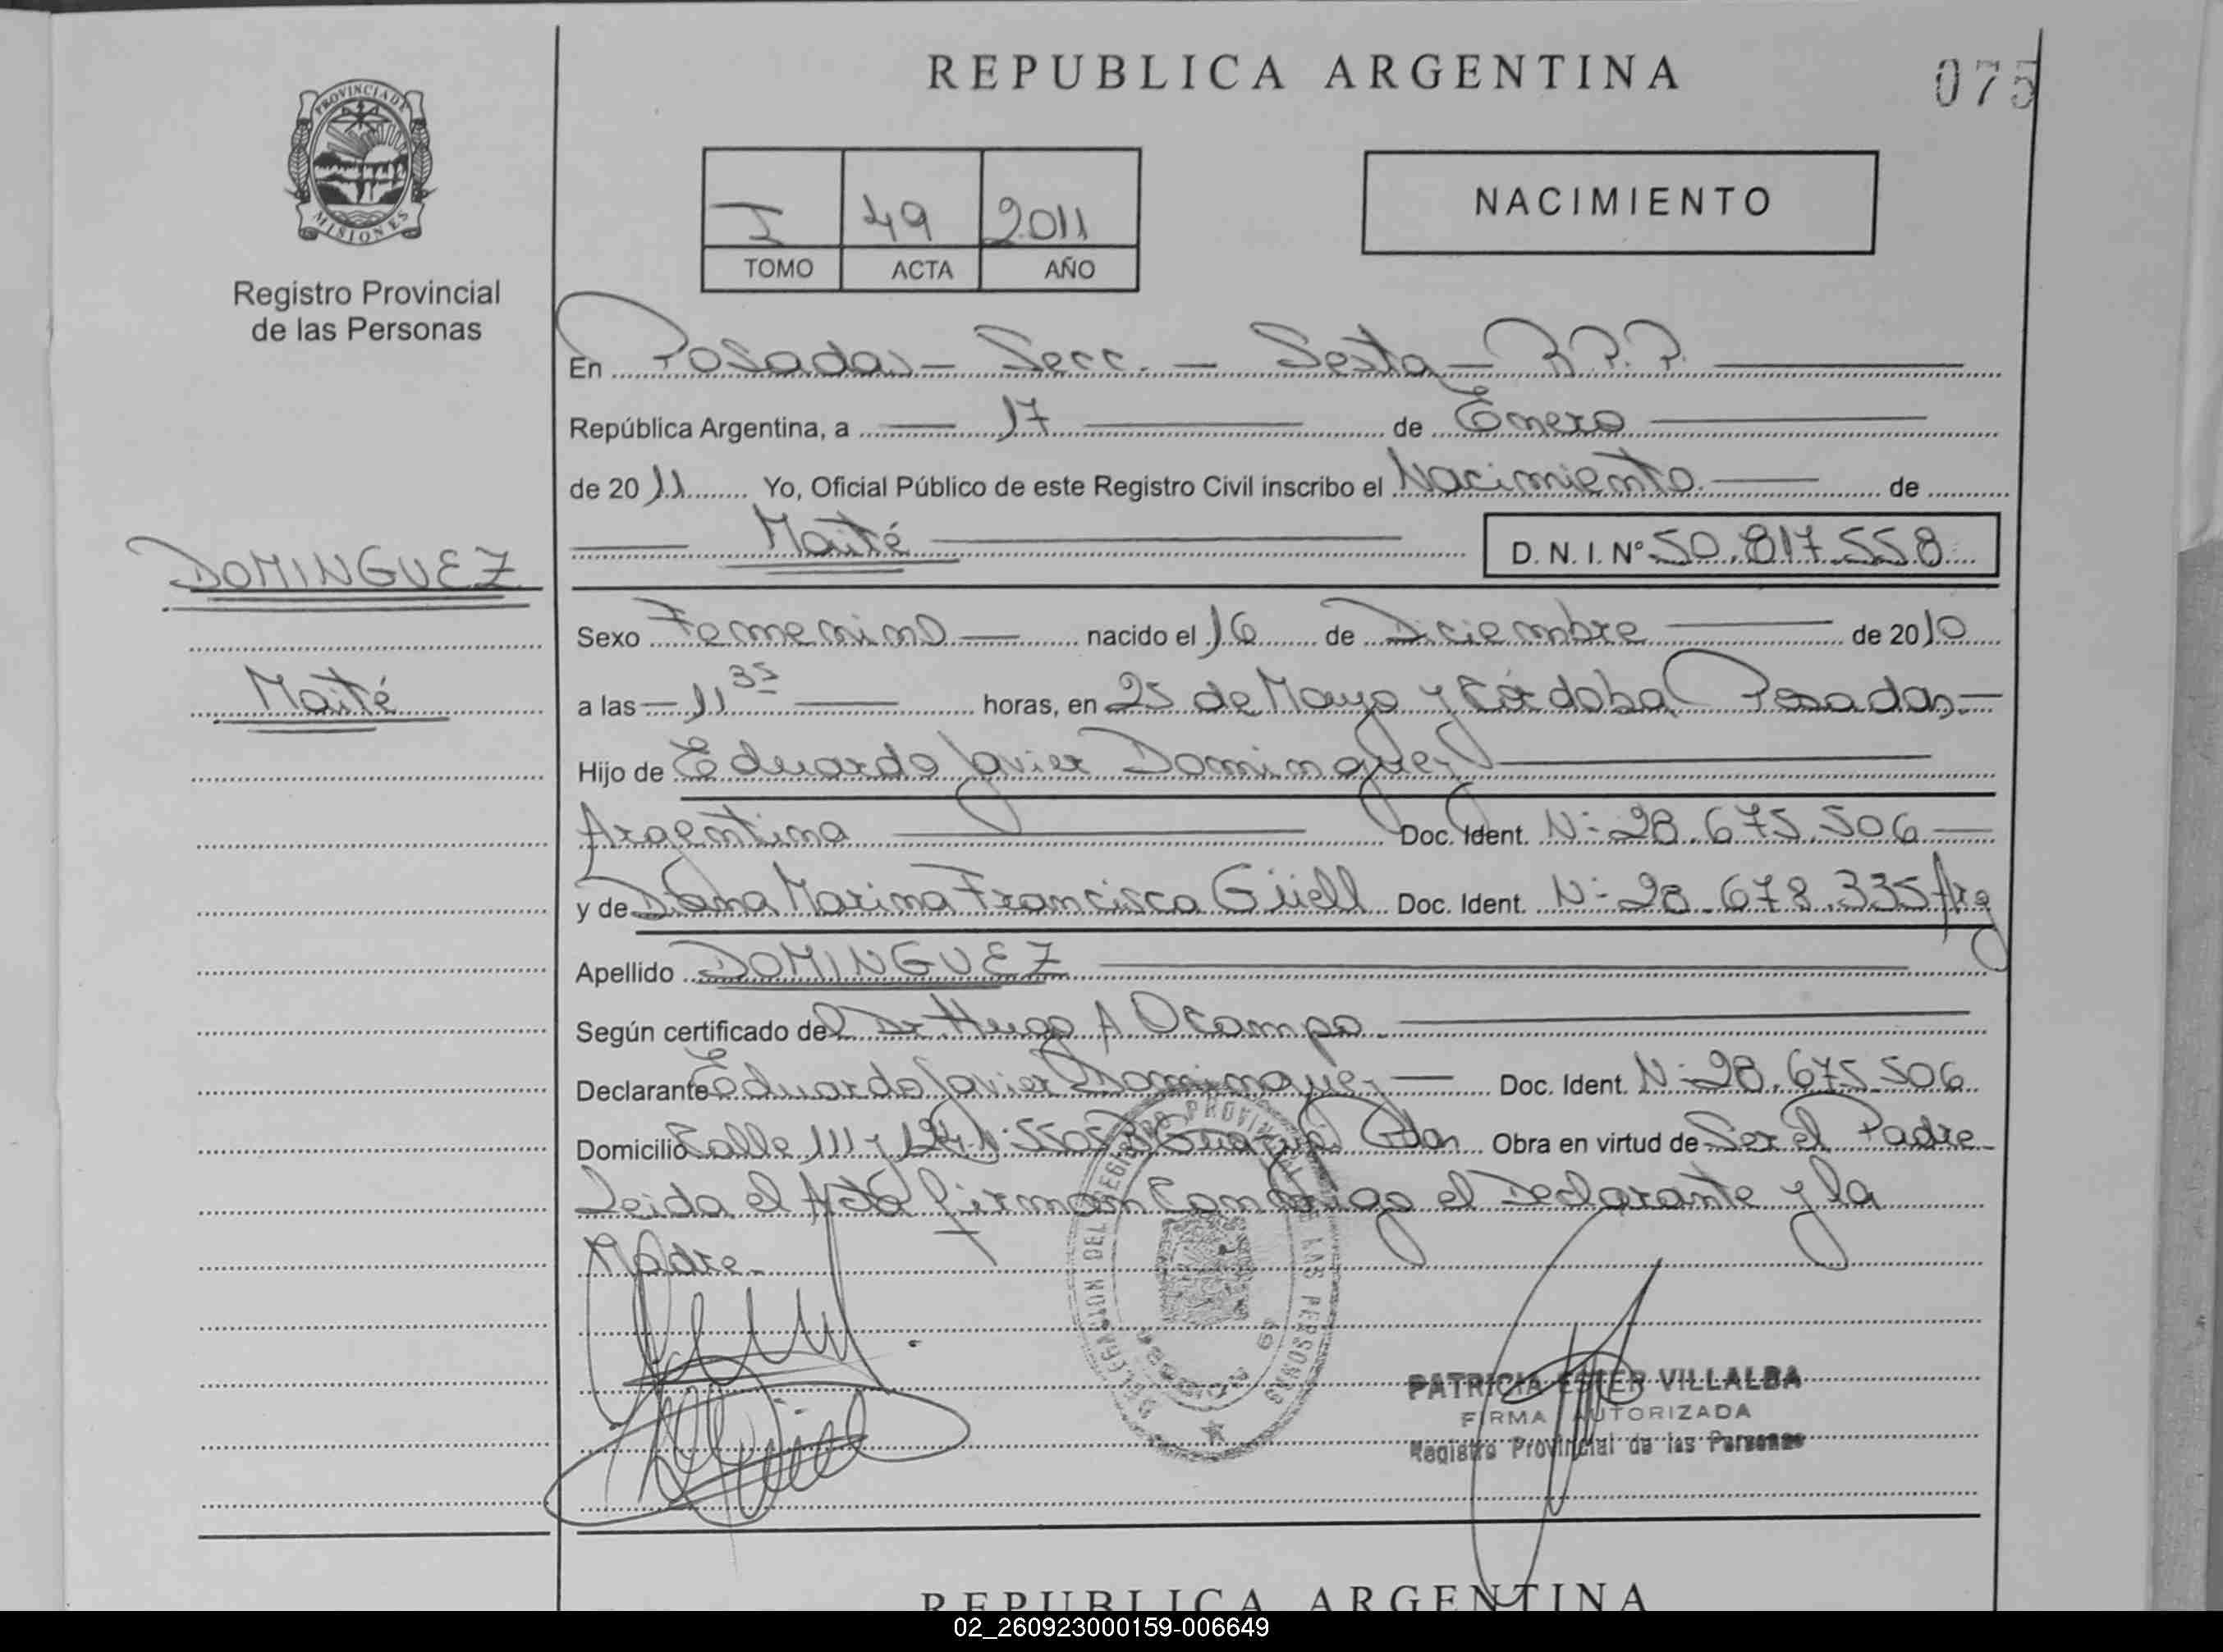 REPUBLICA ARGENTINA
075
PROVINCIA DE MISIONES
Registro Provincial
de las Personas
I 49 2011
TOMO ACTA AÑO
NACIMIENTO
En Posadas - Secc. - Sexta - R.P.P.
República Argentina, a 17 de Enero
de 2011 Yo, Oficial Público de este Registro Civil inscribo el Nacimiento de
Maité D. N. I. Nº 50.817.558
DOMINGUEZ
Maité
Sexo Femenino nacido el 16 de Diciembre de 2010
a las 11 35 horas, en 25 de Mayo y Córdoba Posadas.-
Hijo de Eduardo Javier Dominguez
Argentino Doc. Ident. N: 28.675.506
y de Diana Marina Francisca Güell Doc. Ident. N: 28.678.335 Arg
Apellido DOMINGUEZ
Según certificado del Dr Hugo A Ocampo
Declarante Eduardo Javier Dominguez Doc. Ident. N: 28.675.506
Domicilio Calle 111 y Pdas Obra en virtud de Ser el Padre
Leida el Acta firman Conmigo el Declarante y la
Madre.-
DELEGACION DEL REGISTRO PROVINCIAL DE LAS PERSONAS
PATRICIA ESTER VILLALBA
FIRMA AUTORIZADA
Registro Provincial de las Personas
REPUBLICA ARGENTINA
02_260923000159-006649